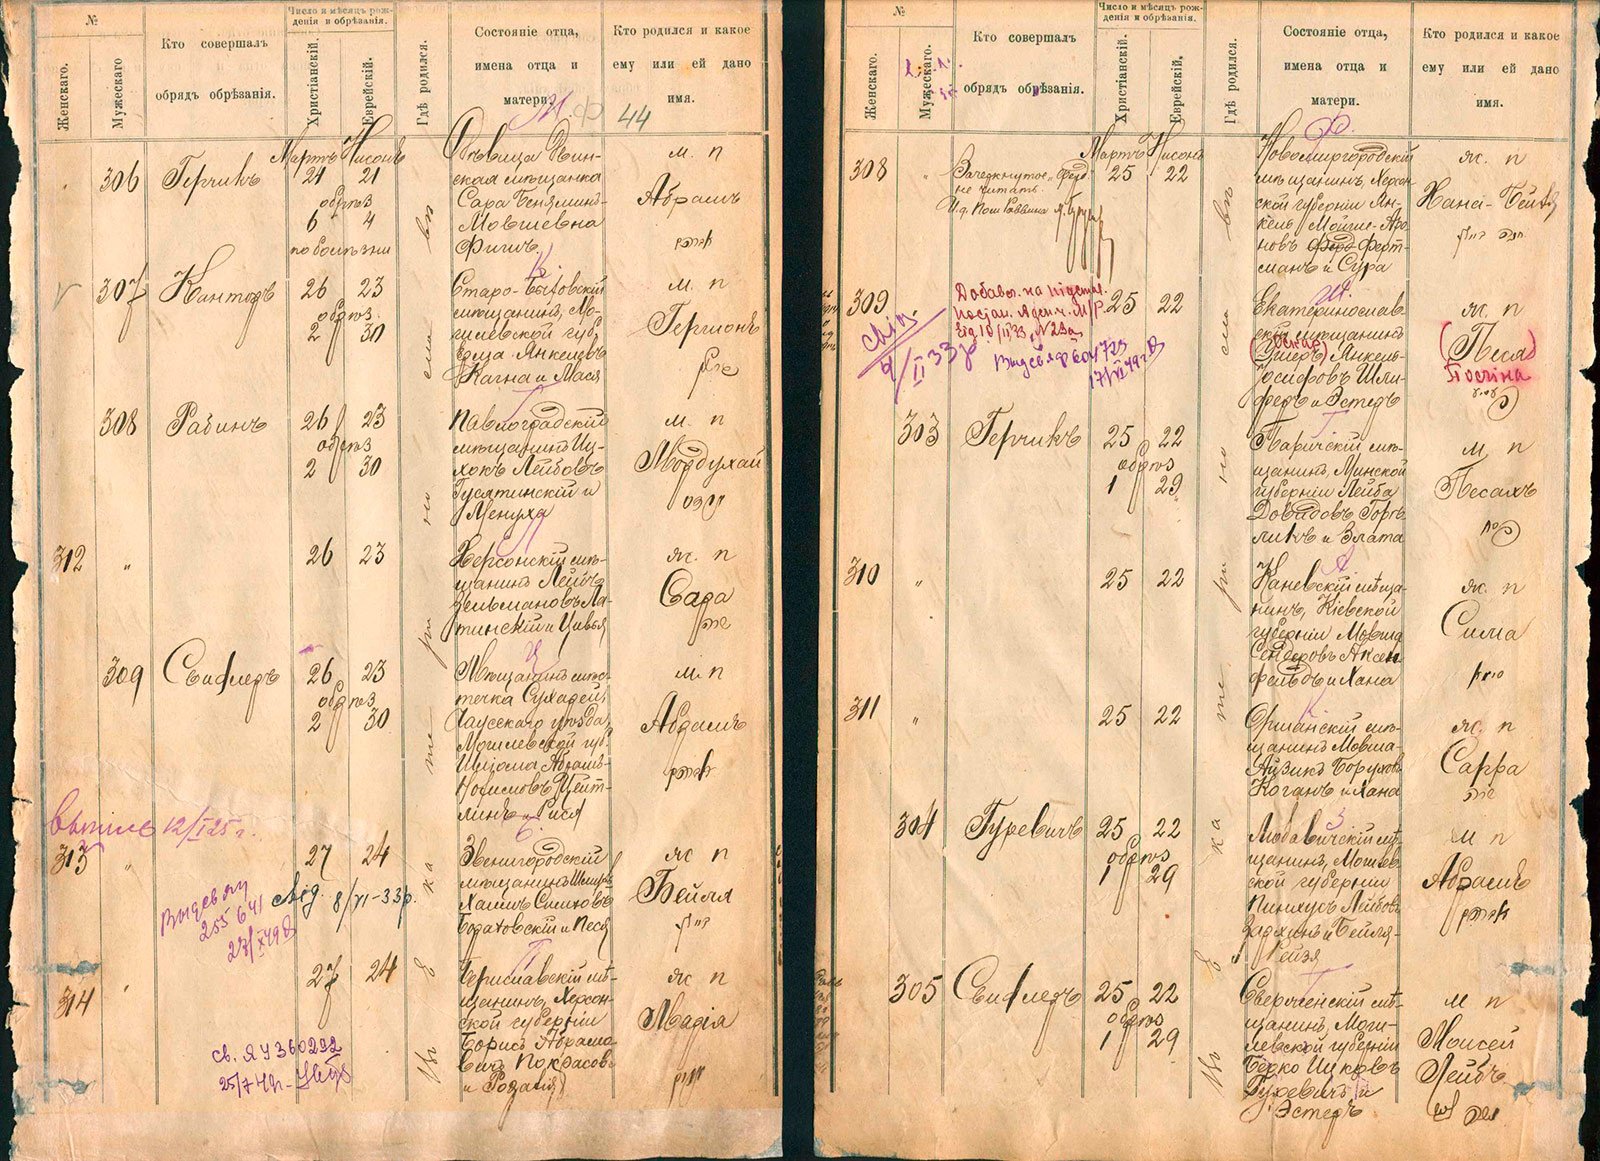 №
Женскаго.
Мужескаго
Кто совершалъ
обрядъ обрѣзанія.
Число и мѣсяцъ рож-
денія и обрѣзанія.
Христіанскій.
Еврейскій.
Гдѣ родился.
Состояніе отца,
имена отца и
матери.
Кто родился и какое
ему или ей дано
имя.
44
306
Герчикъ
Мартъ Нисонъ
24 21
обрѣз
6 4
по болѣзни
Дѣвица Двин-
ская мѣщанка
Сара Беняминъ-
Мовшевна
Фишъ
м. п
Абрамъ
307
Канторъ
26 23
обрѣз
2 30
Старо-Быховскій
мѣщанинъ, Мо-
гилевской губ,
Янкелевъ
Кагна и Мася
м. п
Гершонъ
308
Рабинъ
26 23
обрѣз
2 30
Павлоградскій
мѣщанинъ Иц-
хокъ Лейбовъ
Гусятинскій и
Менуха
м. п
Мордухай
312
"
26 23
Херсонскій мѣ-
щанинъ Лейбъ
Зельмановъ Ла-
тинскій и Цивья
ж. п
Сара
309
Свифлеръ
26 23
обрѣз
2 30
Мѣщанинъ мѣс-
течка Сухарей,
Чаусскаго уѣзда,
Могилевской губ.
Абрамъ-
Цейт-
линъ и Рися
м. п
Абрамъ
12/I 25 г.
313
"
27 24
8/VI-33р.
Звенигородскій
мѣщанинъ
Хаимъ Симховъ
Богатовскій и Песя
ж п
Бейля
255641
27/X 49
314
"
27 24
Бериславскій мѣ-
щанинъ, Херсон-
ской губерніи
Борисъ Абрамо-
вичъ Покрасовъ
и Розалія
ж п
Марія
св. ЯУ 360292
25/7 47г.
въ Екатеринославѣ
№
Женскаго.
Мужескаго.
Кто совершалъ
обрядъ обрѣзанія.
Число и мѣсяцъ рож-
денія и обрѣзанія.
Христіанскій.
Еврейскій.
Гдѣ родился.
Состояніе отца,
имена отца и
матери.
Кто родился и какое
ему или ей дано
имя.
308
"
Зачеркнутое „Ферд"
не читать
И.д. Пом Раввина
Мартъ Нисонъ
25 22
Новомиргородскій
мѣщанинъ, Херсон-
ской губерніи Ян-
кель Мойше-Аро-
новъ Ферд Ферт-
манъ и Сура
ж. п
Хана-Бейла
309
"
25 22
№ 23а
4/II 33р
604723
17/VI 49г
Екатеринослав-
скій мѣщанинъ
(Оскар)
Ушеръ Янкель-
Іосифовъ Шли-
феръ и Эстеръ
ж. п
(Песя)
303
Герчикъ
25 22
обрѣз
1 29
Паричскій мѣ-
щанинъ, Минской
губерніи Лейба
Довидовъ Горе-
ликъ и Злата
м п
Песахъ
310
"
25 22
Каневскій мѣща-
нинъ, Кіевской
губерніи Мовша
Сендеровъ Аксен-
фельдъ и Хана
ж. п
Сима
311
"
25 22
Оршанскій мѣ-
щанинъ Мовша
Айзикъ Боруховъ
Коганъ и Хана
ж. п
Сарра
304
Гуревичъ
25 22
обрѣз
1 29
Любавичскій мѣ-
щанинъ, Могилев-
ской губерніи
Пинхусъ Лейбовъ
Зархинъ и Бейля-
Рейзя
м п
Абрамъ
305
Свифлеръ
25 22
обрѣз
1 29
Сверженскій мѣ-
щанинъ, Моги-
левской губерніи
Берко Ицковъ
Гуревичъ и
Эстеръ
м п
Моисей
Лейбъ
въ Екатеринославѣ